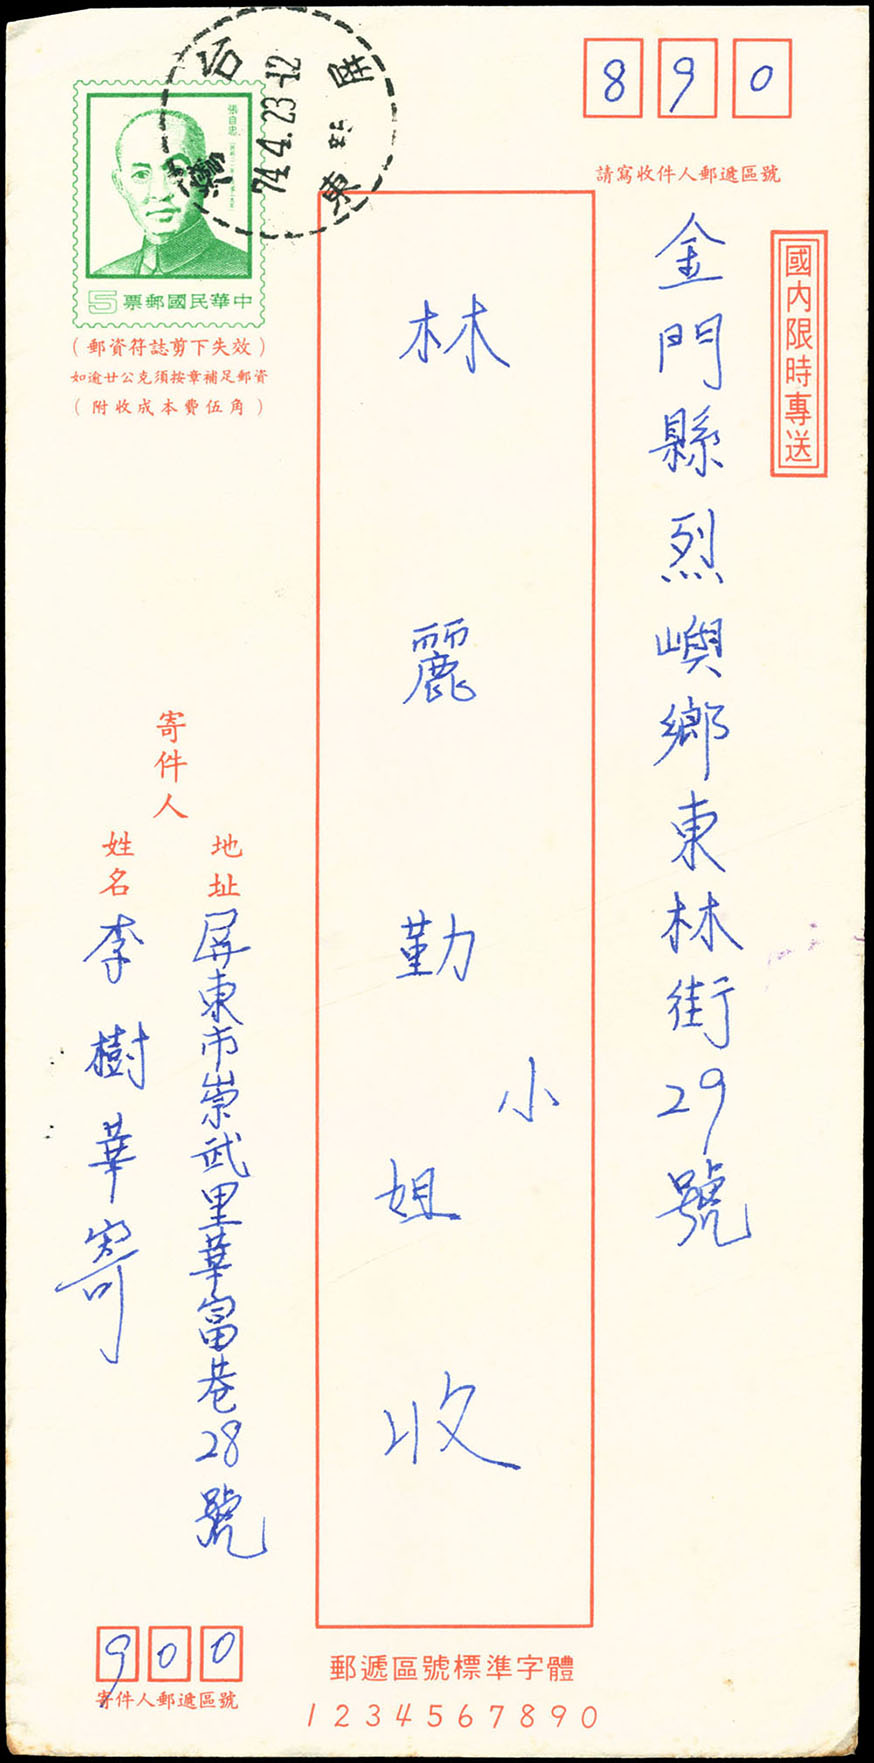 890
請寫收件人郵遞區號
國內限時專送
金門縣烈嶼鄉東林街29號
林麗勤小姐收
台
屏東
74.4.23.12
張自忠
中華民國郵票
5
(郵資符誌剪下失效)
如逾廿公克須按章補足郵資
(附收成本費伍角)
寄件人
地址
屏東市崇武里華富巷28號
姓名
李樹華寄
900
寄件人郵遞區號
郵遞區號標準字體
1234567890